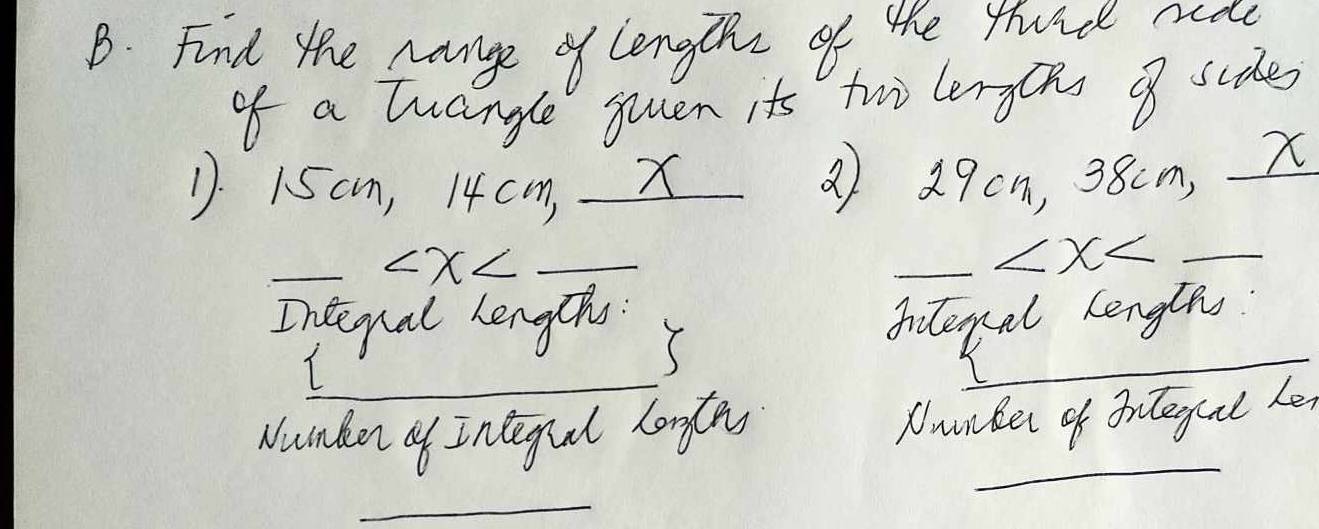 B. Find the range of lengths of the third side
of a triangle given its two lengths of sides
1). 15 cm, 14 cm, X
2) 29 cm, 38 cm, X
__ < X < __
__ < X < __
Integral Lengths:
Integral Lengths:
{ }
{
Number of Integral Lengths
Number of Integral Len